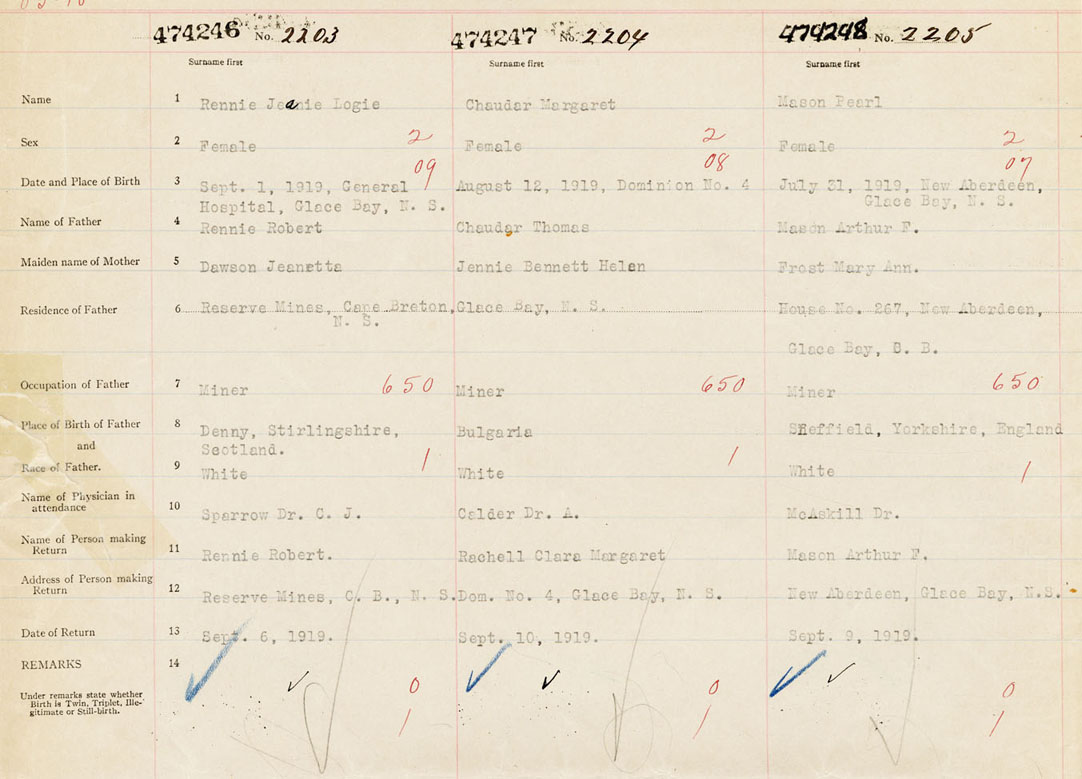 474246 No. 2203 474247 No. 2204 474248 No. 2205
Surname first Surname first Surname first
Name 1 Rennie Jeanie Logie Chaudar Margaret Mason Pearl
Sex 2 Female 2 Female 2 Female 2
09 08 07
Date and Place of Birth 3 Sept. 1, 1919, General August 12, 1919, Dominion No. 4 July 31, 1919, New Aberdeen,
Hospital, Glace Bay, N. S. Glace Bay, N. S.
Name of Father 4 Rennie Robert Chaudar Thomas Mason Arthur F.
Maiden name of Mother 5 Dawson Jeanetta Jennie Bennett Helen Frost Mary Ann.
Residence of Father 6 Reserve Mines, Cape Breton, Glace Bay, N. S. House No. 267, New Aberdeen,
N. S.
Glace Bay, C. B.
Occupation of Father 7 Miner 650 Miner 650 Miner 650
Place of Birth of Father 8 Denny, Stirlingshire, Bulgaria Sheffield, Yorkshire, England
and Scotland.
Race of Father. 9 White 1 White 1 White 1
Name of Physician in
attendance 10 Sparrow Dr. C. J. Calder Dr. A. McAskill Dr.
Name of Person making
Return 11 Rennie Robert. Rachell Clara Margaret Mason Arthur F.
Address of Person making
Return 12 Reserve Mines, C. B., N. S. Dom. No. 4, Glace Bay, N. S. New Aberdeen, Glace Bay, N.S.
Date of Return 13 Sept. 6, 1919. Sept. 10, 1919. Sept. 9, 1919.
REMARKS 14
Under remarks state whether 0 0 0
Birth is Twin, Triplet, Ille-
gitimate or Still-birth. 1 1 1